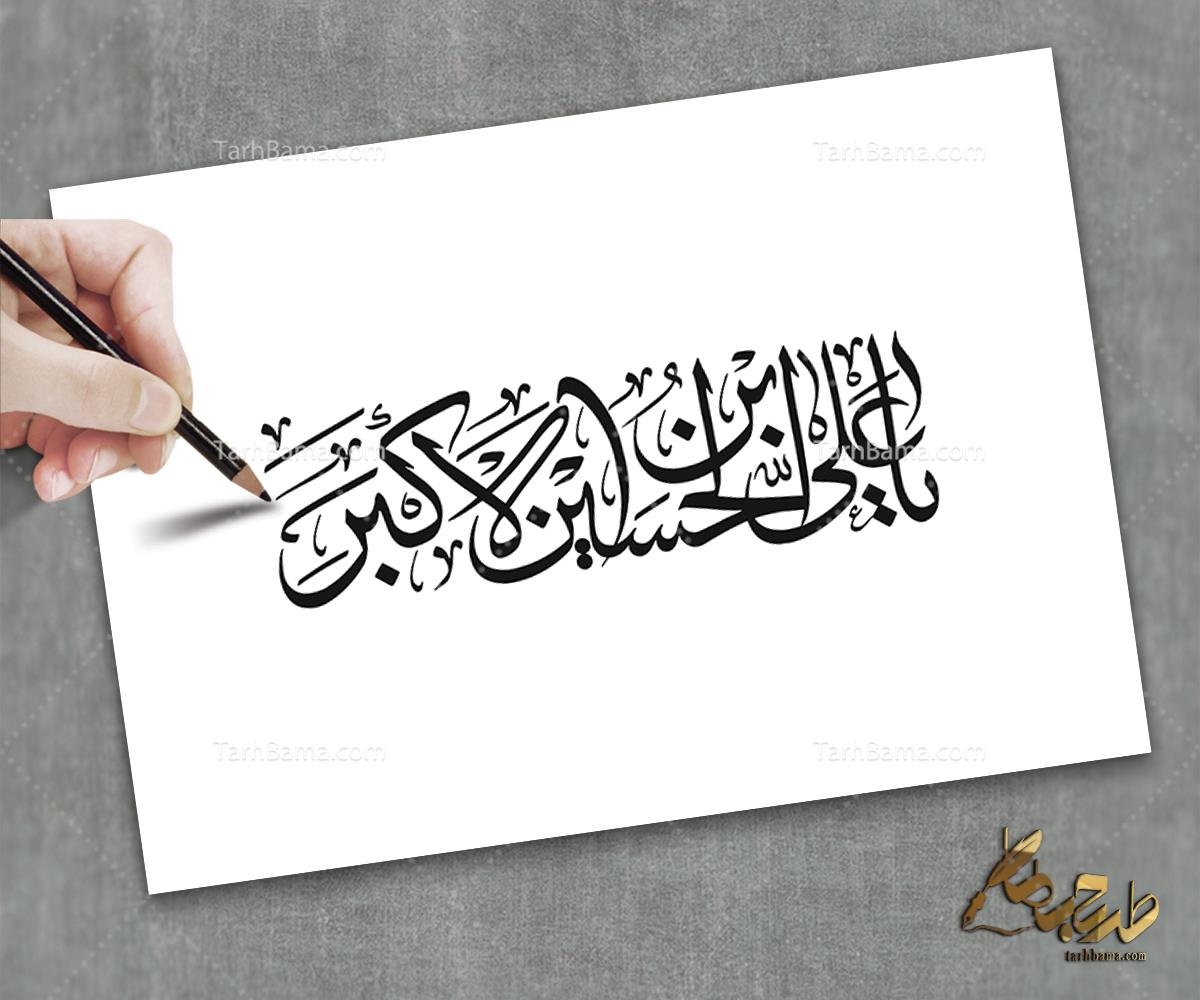 TarhBama.com TarhBama.com
یا علی ابن الحسین الأکبر
TarhBama.com TarhBama.com
TarhBama.com TarhBama.com
طرح با ما
tarhbama.com